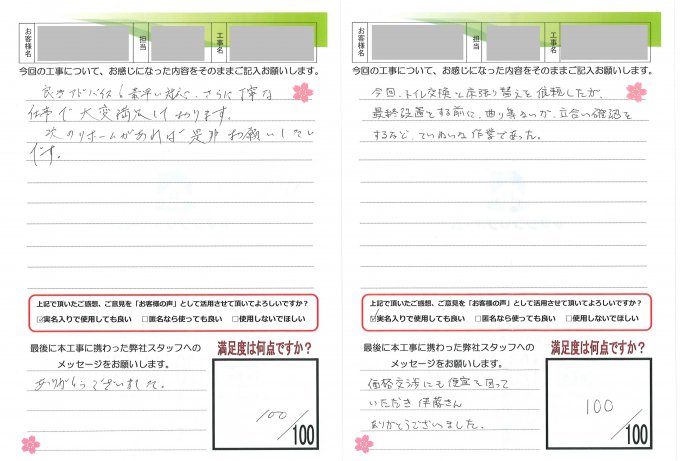 お客様名
担当
工事名
今回の工事について、お感じになった内容をそのままご記入お願いします。
良きアドバイスと素早い対応、さらに丁寧な
仕事で大変満足しております。
次のリホームがあれば是非お願いしたい
です。
上記で頂いたご感想、ご意見を「お客様の声」として活用させて頂いてよろしいですか？
☑実名入りで使用しても良い　□匿名なら使っても良い　□使用しないでほしい
最後に本工事に携わった弊社スタッフへの
メッセージをお願いします。
ありがとうございました。
満足度は何点ですか？
100
/100
お客様名
担当
工事名
今回の工事について、お感じになった内容をそのままご記入お願いします。
今回、トイレ交換と床張り替えを依頼したが、
最終設置をする前に、曲り等ないか、立合い確認を
するなど、ていねいな作業であった。
上記で頂いたご感想、ご意見を「お客様の声」として活用させて頂いてよろしいですか？
☑実名入りで使用しても良い　□匿名なら使っても良い　□使用しないでほしい
最後に本工事に携わった弊社スタッフへの
メッセージをお願いします。
価格交渉にも便宜を図って
いただき伊藤さん
ありがとうございました。
満足度は何点ですか？
100
/100